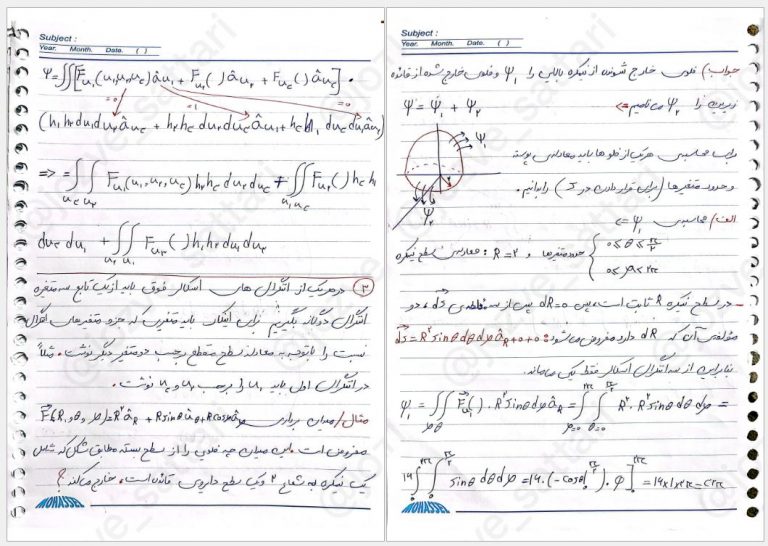 Subject :
Year.   Month.   Date.   (   )
Ψ = ∬ [F_u₁(u₁,u₂,u₃) â_u₁ + F_u₂( ) â_u₂ + F_u₃( ) â_u₃] ·
=0   =1   =0
(h₁h₂ du₁du₂ â_u₃ + h₂h₃ du₂du₃ â_u₁ + h₃h₁ du₃du₁ â_u₂)
⇒ = ∬ F_u₁(u₁,u₂,u₃) h₂h₃ du₂du₃ + ∬ F_u₂( ) h₃h₁
u₃ u₂   u₁ u₃
du₃ du₁ + ∬ F_u₃( ) h₁h₂ du₁du₂
u₂ u₁
۳) در هریک از انتگرال های اسکالر فوق باید از یک تابع سه متغیره
انتگرال دوگانه بگیریم برای اینکار باید متغیری که جزو متغیرهای انتگرال
نیست را با توجه به معادله سطح مقطع برحسب دو متغیر دیگر نوشت. مثلاً
در انتگرال اول باید u₁ را برحسب u₂ و u₃ نوشت.
مثال/ میدان برداری F(R,θ,φ) = R²â_R + R sinθ â_θ + R cosθ â_φ
مفروض است. این میدان چه فلوی را از سطح بسته مطابق شکل که شامل
یک نیمکره به شعاع ۲ و یک سطح دایروی قائده است. خارج میکند؟
MOHASSEL
Subject :
Year.   Month.   Date.   (   )
جواب) فلوی خارج شونده از نیمکره بالایی را Ψ₁ و فلوی خارج شده از قائده
زیرین را Ψ₂ می نامیم ⇒   Ψ = Ψ₁ + Ψ₂
Ψ₁
برای محاسبه هریک از فلوها باید معادله پوسته
و حدود متغیرها (برای قرار دادن در ∬) را بدانیم.
Ψ₂
الف) محاسبه Ψ₁ ⇒
معادله سطح نیمکره : R = ۲ و حدود متغیرها { ۰≤θ≤π/۲
۰≤φ≤۲π
در سطح نیمکره R ثابت است، پس dR=۰ پس از سه مؤلفه ی ds، دو
مؤلفه ی آن که dR دارد صفر می شود: ds = R² sinθ dθ dφ â_R + ۰ + ۰
بنابراین از سه انتگرال اسکالر فقط یکی می ماند.
Ψ₁ = ∬ F( ) · R² sinθ dθ dφ â_R = ∫∫ R² · R² sinθ dθ dφ =
φ θ   φ=۰ θ=۰
۱۶ ∫∫ sinθ dθ dφ = ۱۶ · (−cosθ) · φ] = ۱۶×۱×۲π = ۳۲π
MOHASSEL